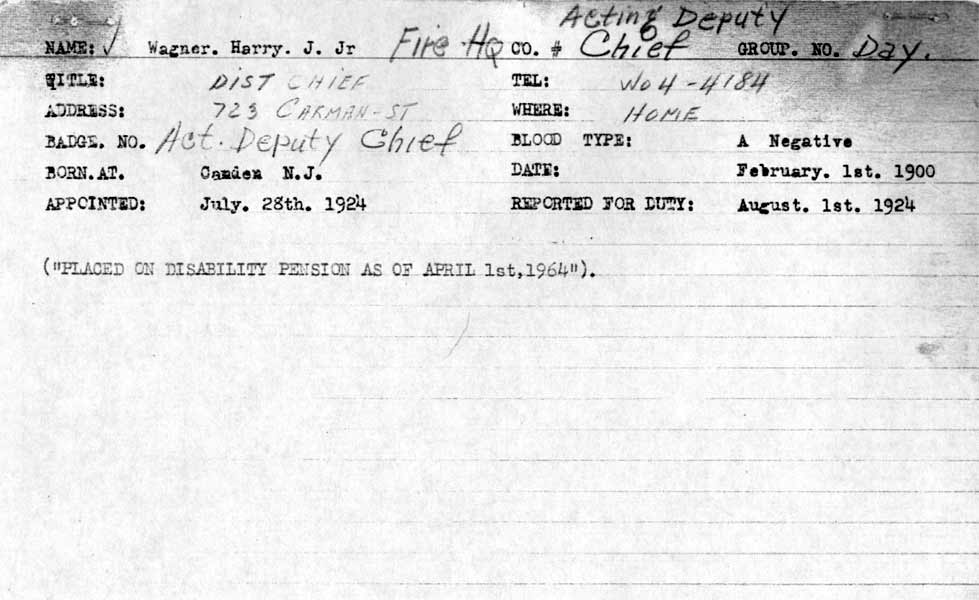 Acting Deputy
NAME: √ Wagner. Harry. J. Jr Fire Hq CO. # Chief GROUP. NO. Day.
TITLE: DIST CHIEF TEL: WO 4-4184
ADDRESS: 723 CARMAN-ST WHERE: HOME
BADGE. NO. Act. Deputy Chief BLOOD TYPE: A Negative
BORN.AT. Camden N.J. DATE: February. 1st. 1900
APPOINTED: July. 28th. 1924 REPORTED FOR DUTY: August. 1st. 1924
("PLACED ON DISABILITY PENSION AS OF APRIL 1st,1964").